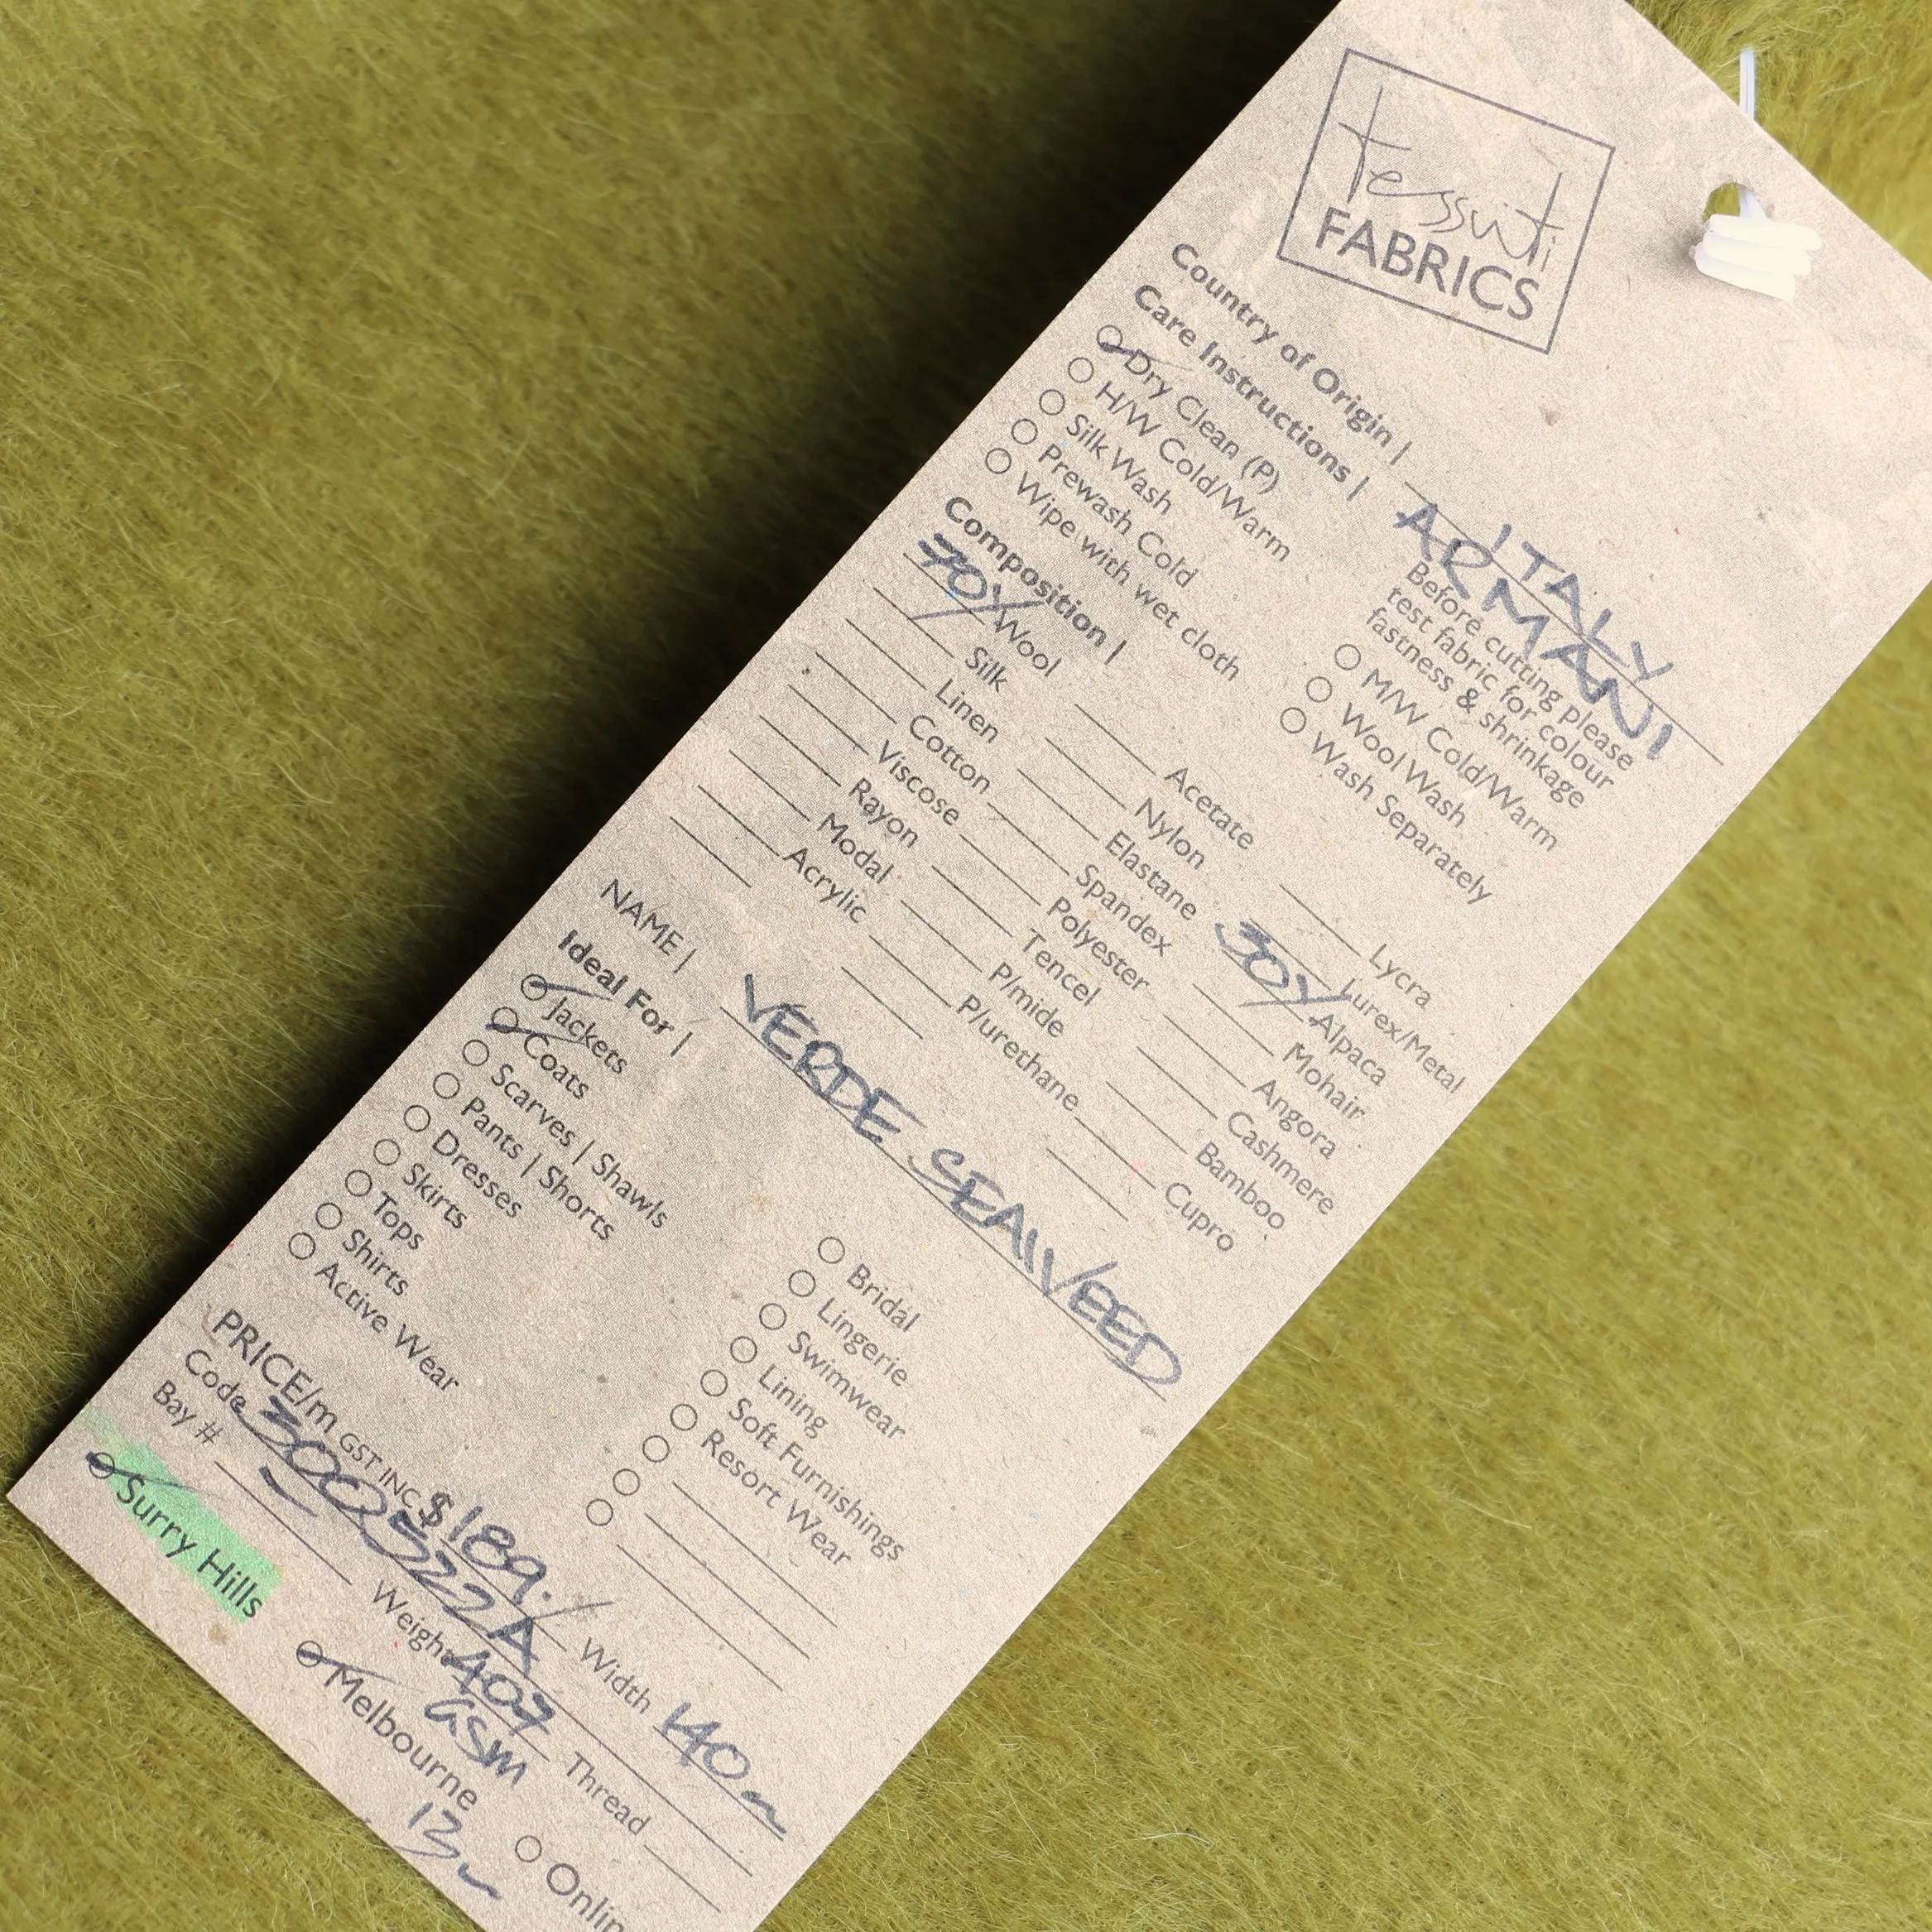 tessuti
FABRICS
Country of Origin | ITALY
ARMANI
Care Instructions |
Before cutting please
test fabric for colour
fastness & shrinkage
Dry Clean (P)
H/W Cold/Warm
Silk Wash
Prewash Cold
Wipe with wet cloth
M/W Cold/Warm
Wool Wash
Wash Separately
Composition |
70% Wool
Silk
Linen
Cotton
Viscose
Rayon
Modal
Acrylic
Acetate
Nylon
Elastane
Spandex
Polyester
Tencel
P/mide
P/urethane
Lycra
Lurex/Metal
30% Alpaca
Mohair
Angora
Cashmere
Bamboo
Cupro
NAME | VERDE SEAWEED
Ideal For |
Jackets
Coats
Scarves | Shawls
Pants | Shorts
Dresses
Skirts
Tops
Shirts
Active Wear
Bridal
Lingerie
Swimwear
Lining
Soft Furnishings
Resort Wear
PRICE/m GST INC $189.
Code 300522A Width 140
Bay # Weight 407 GSM Thread
Surry Hills Melbourne Onlin